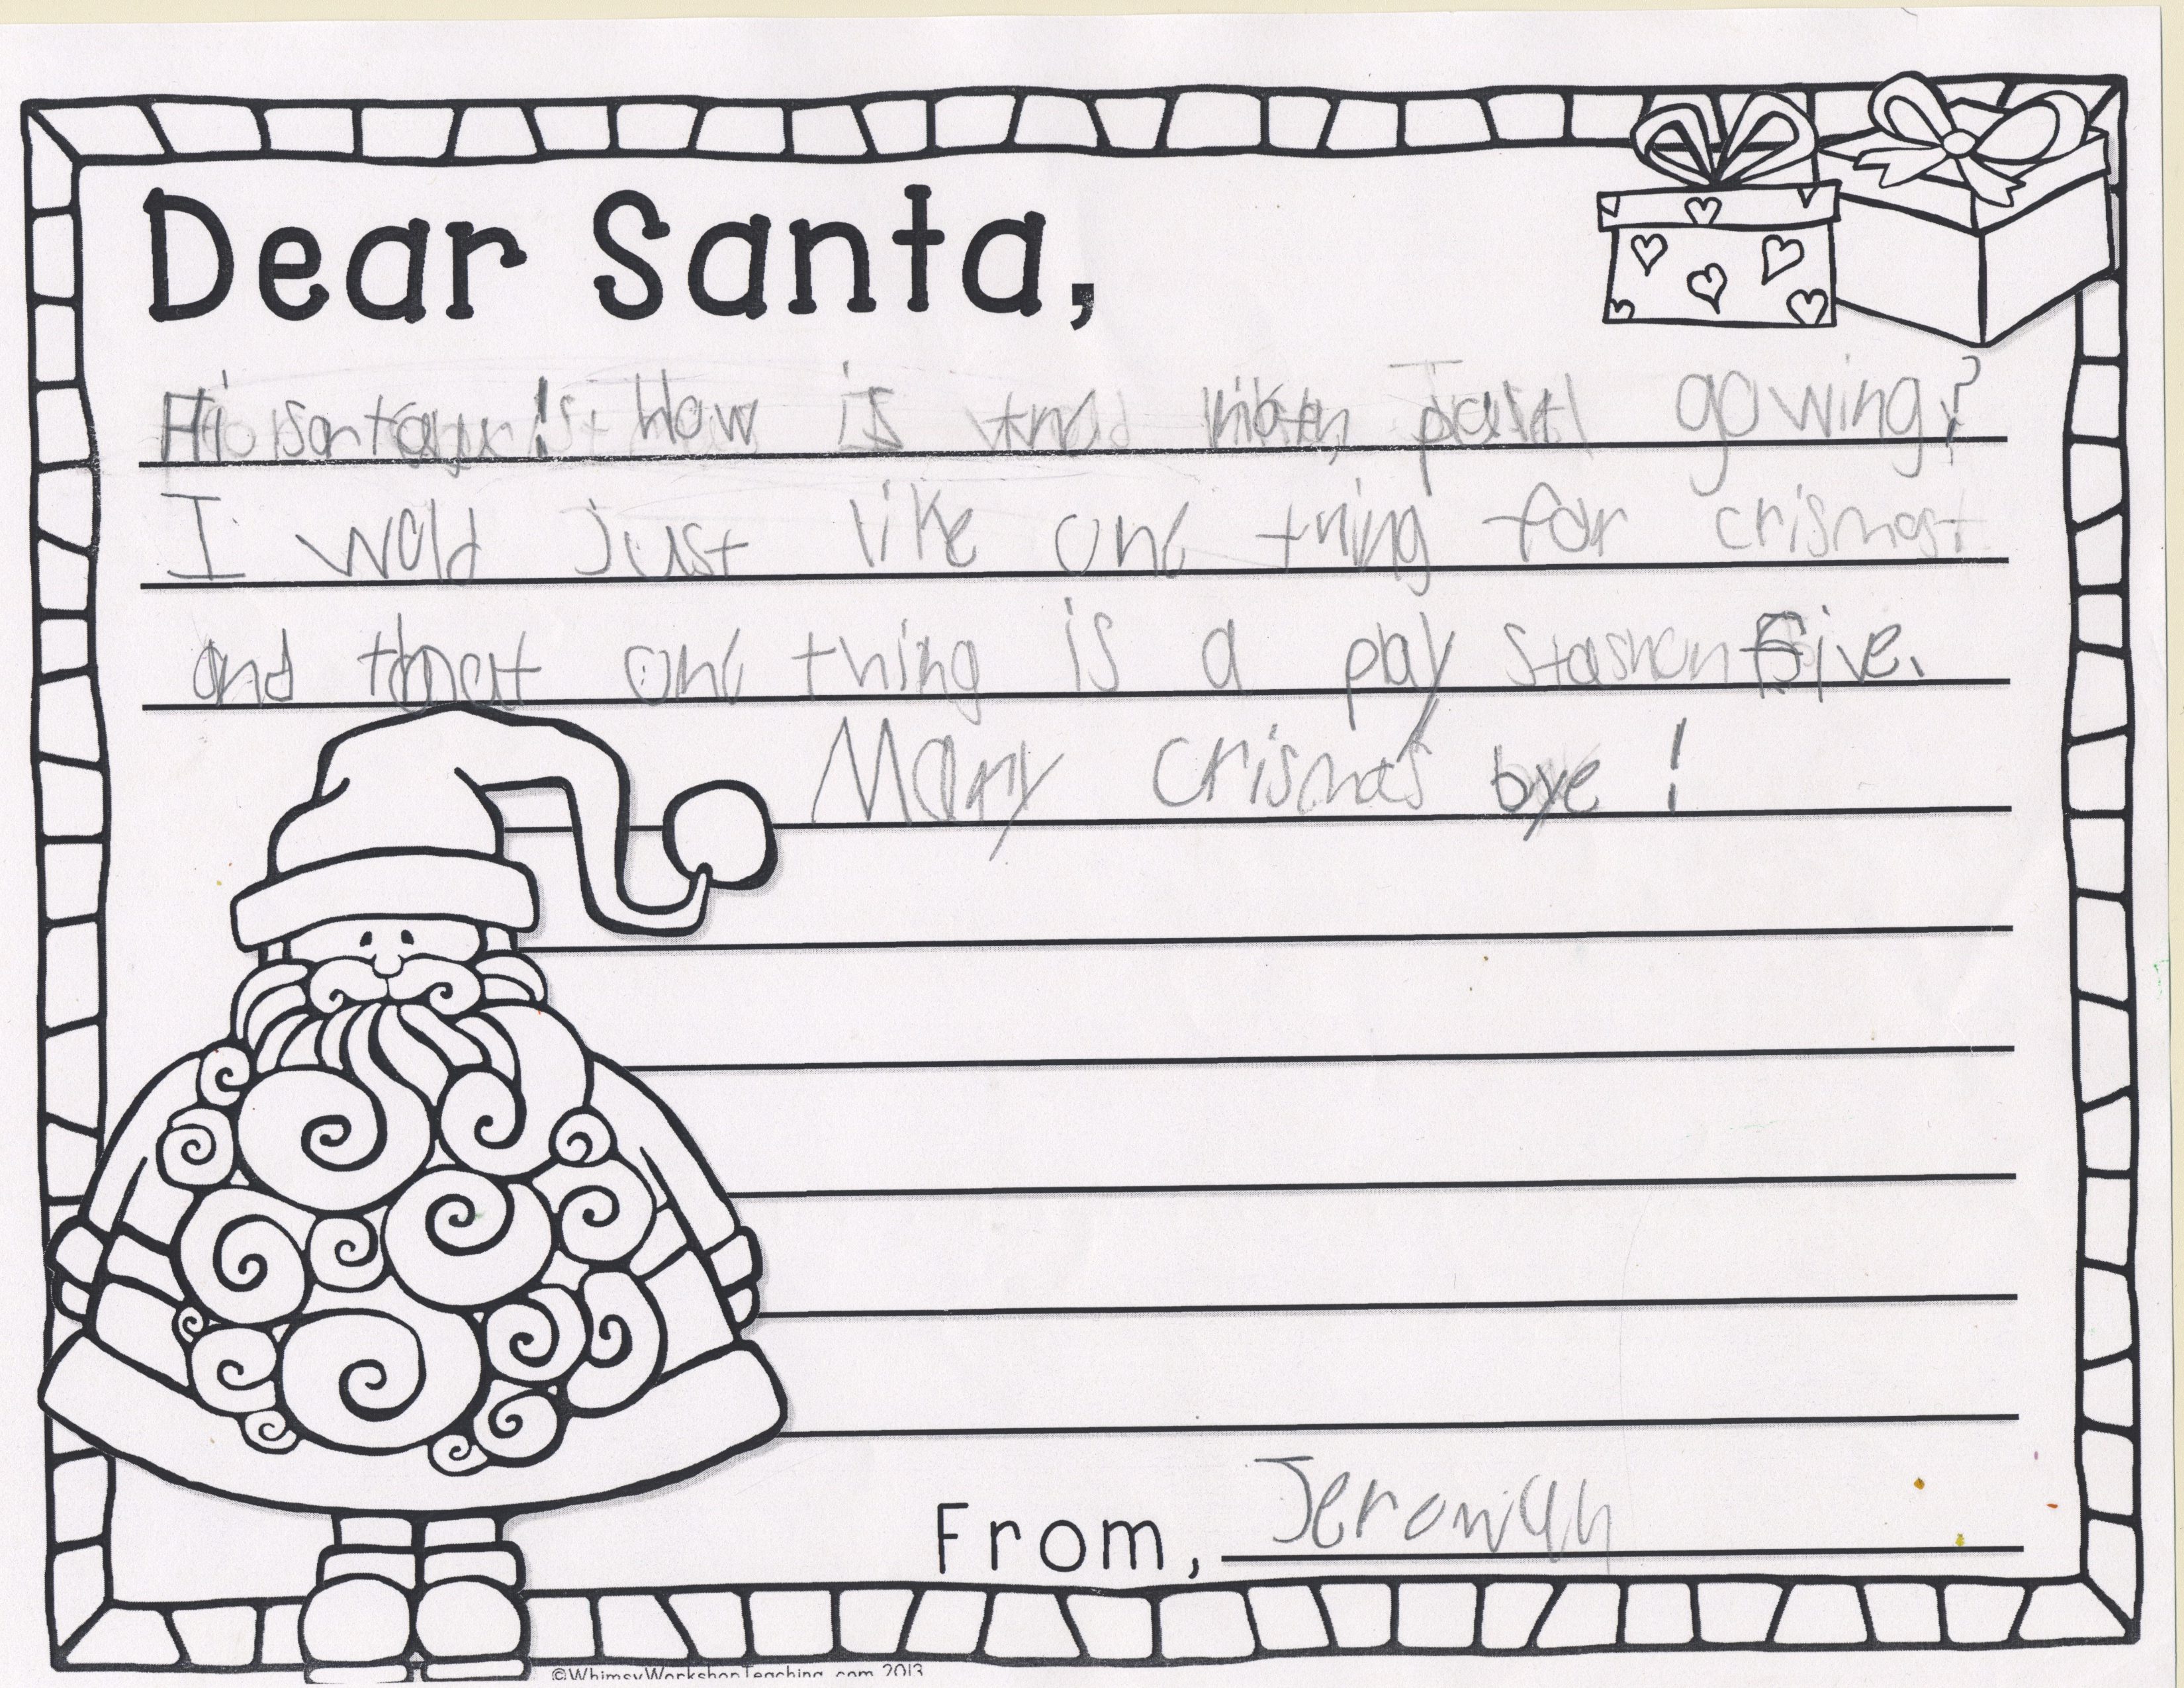 Dear Santa,
Hi santa! How is the north pole gowing?
I wold just like one thing for crismast
and that one thing is a play stashon five.
Marry crismas bye!
From, Jerowiah
©WhimsyWorkshopTeaching.com 2013